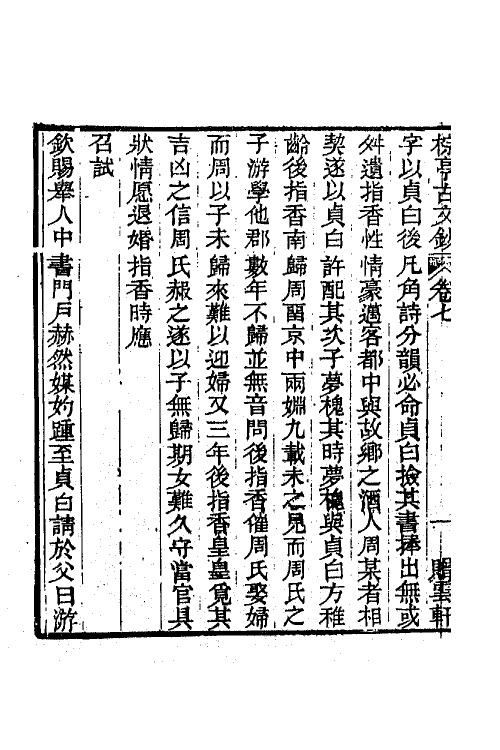 亭古文鈔 卷七 一 雲軒
字以貞白後凡角詩分韻必命貞白撿其書捧出無或
舛遺指香性情豪邁客都中與故鄉之酒人周某者相
契遂以貞白許配其次子夢槐其時夢槐與貞白方稚
齡後指香南歸周畱京中兩姻九載未之見而周氏之
子游學他郡數年不歸並無音問後指香催周氏娶婦
而周以子未歸來難以迎婦又三年後指香皇皇覓其
吉凶之信周氏赧之遂以子無歸期女難久守當官具
狀情愿退婚指香時應
召試
欽賜舉人中書門戶赫然媒妁踵至貞白請於父曰游